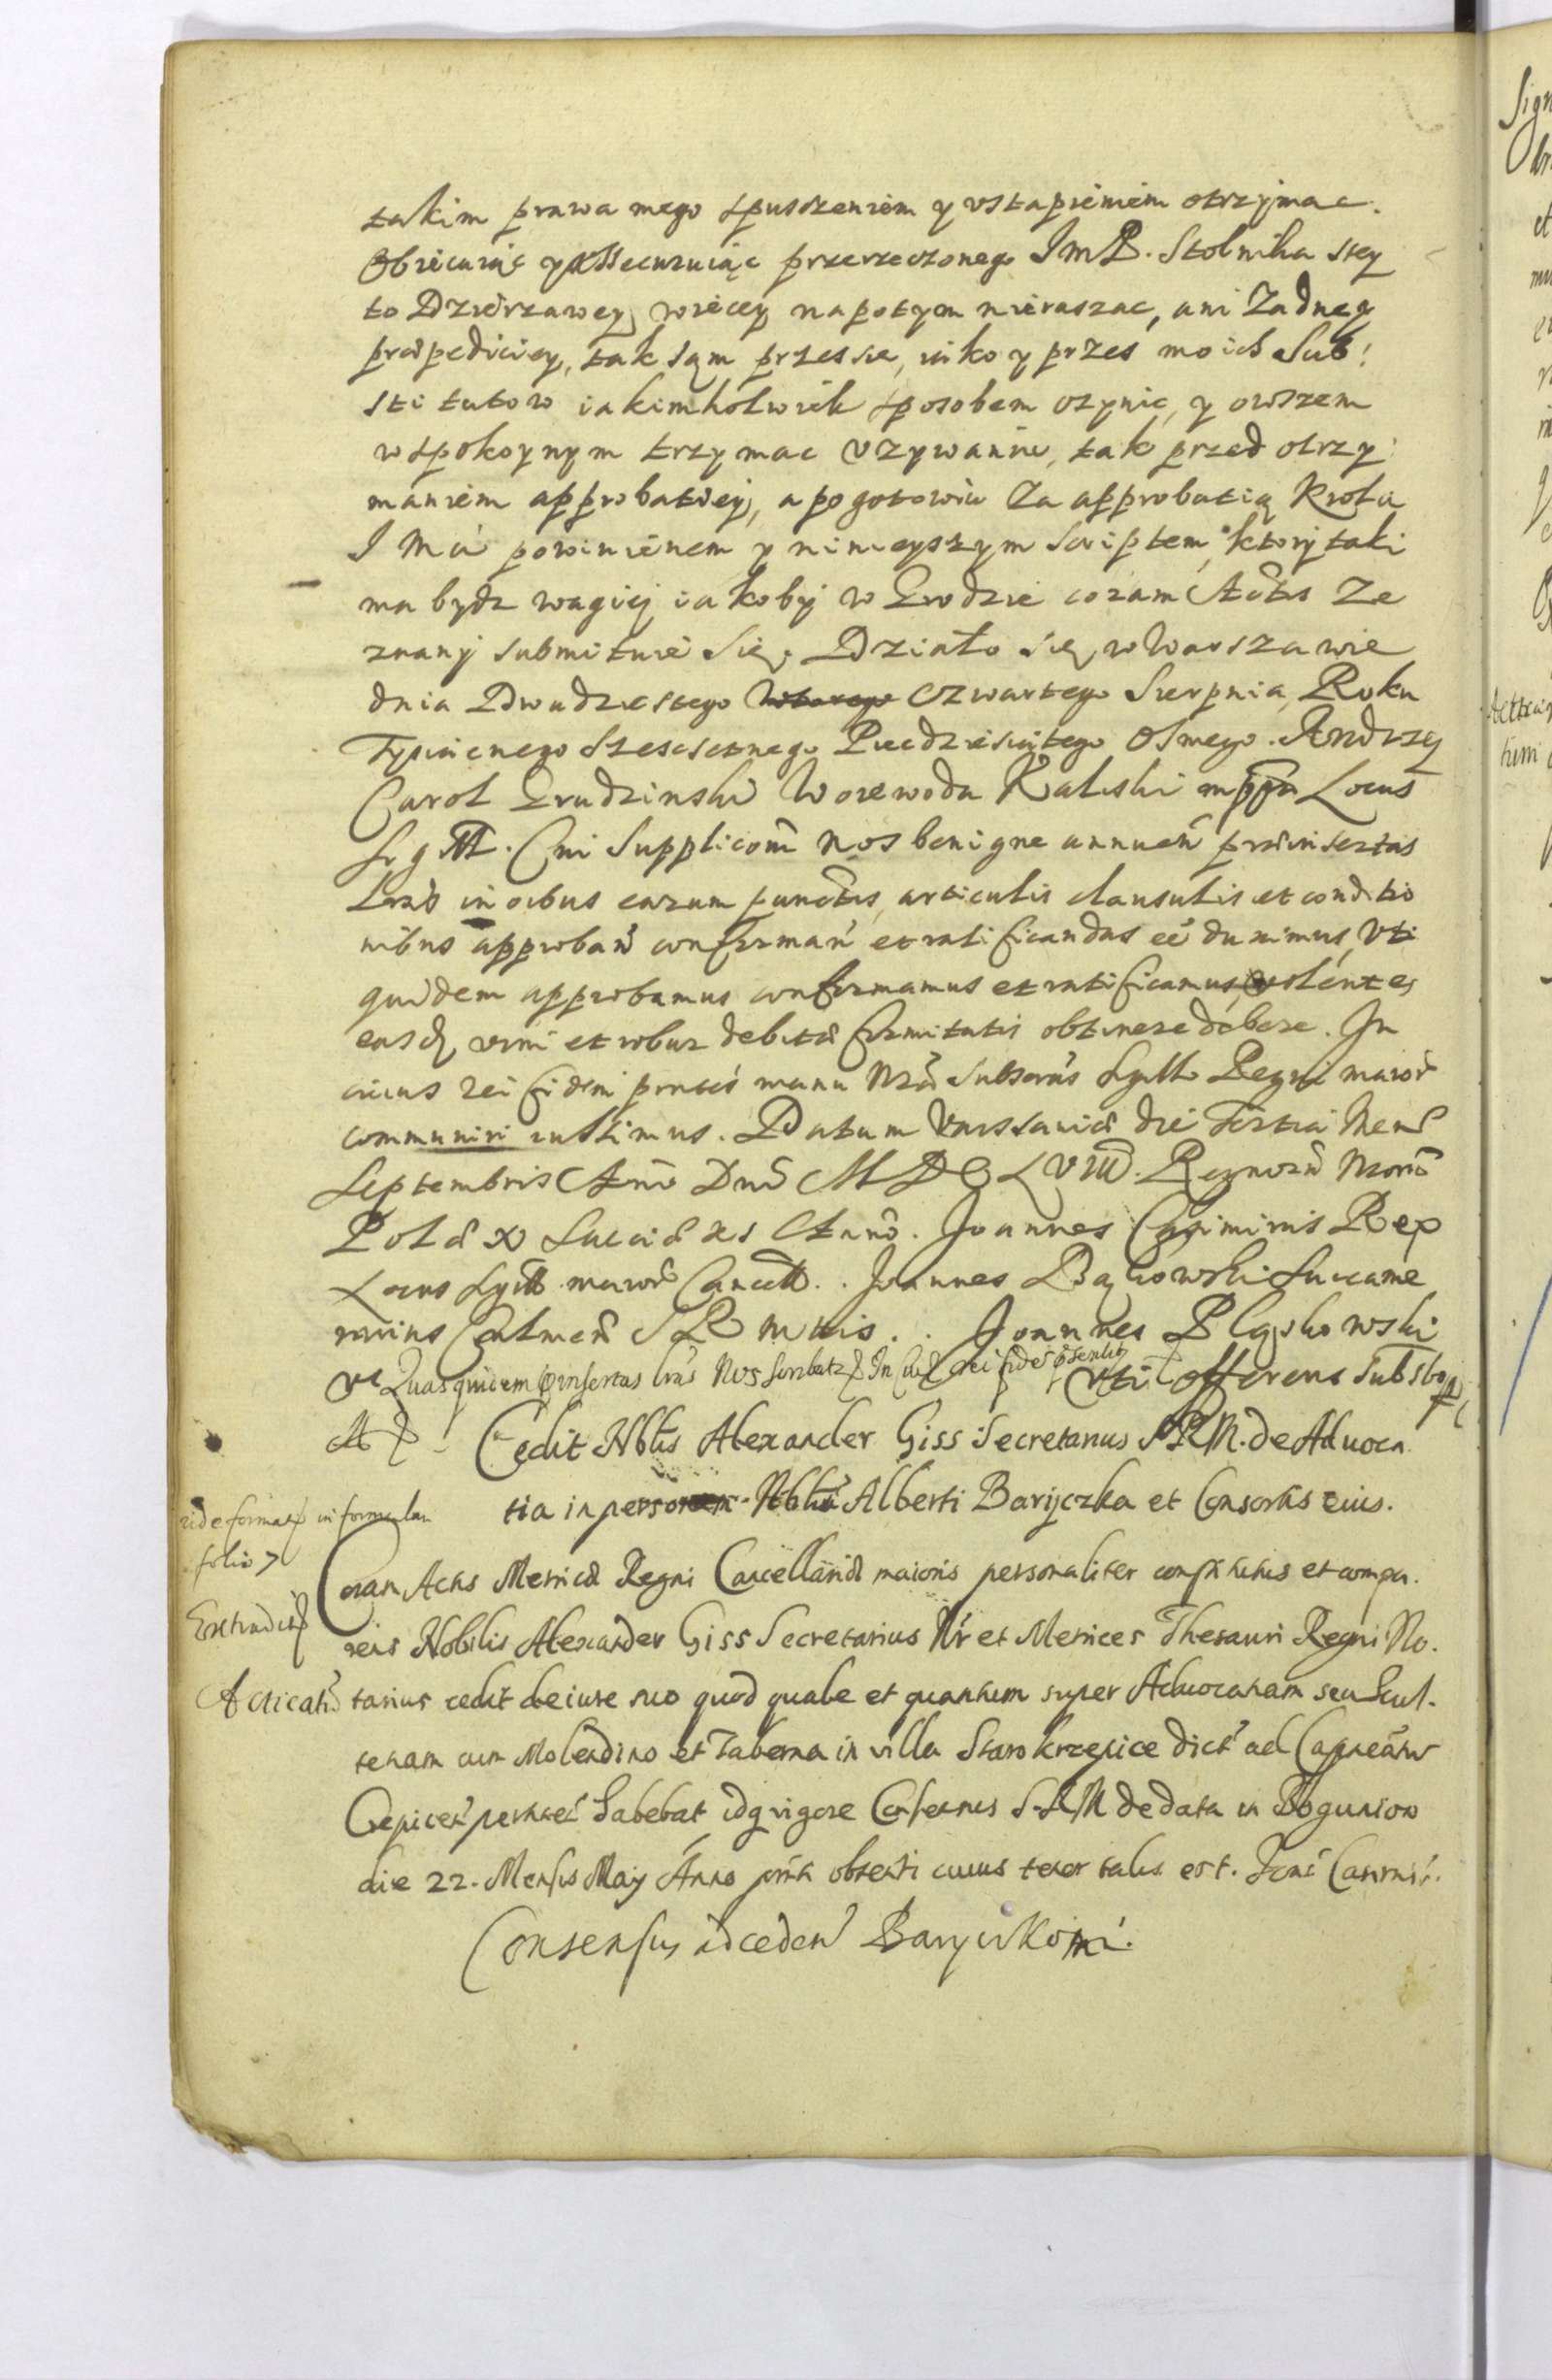 takim prawa mego spuszczeniem y ustapieniem otrzymac.
Obiecuiąc y Assecuruiąc przerzeczonego ImP. Stolnika stey
to Dzierzawey więcey napotym nieruszac, ani Zadney
præpediciey, tak sąm przes się, iako y przes moich Sub:
stitutow iakimkolwiek sposobem czynic, y owszem
w spokoynym trzymac uzywaniu, tak przed otrzy:
maniem approbatiey, a pogotowiu Za approbatią Krola
I Mci powinienem y ninieyszym scriptem, ktory taki
ma bydz wagiej iakoby w Grodzie coram Actis Ze
znany submituie Się. Działo się w Warszawie
dnia Dwudziestego Wtorego Czwartego Sierpnia, Roku
Tysiącnego Szescsetnego Piecdziesiątego Osmego. Andrzey
Carol Grudzinski Woiewoda Kaliski mppa Locus
Sigill. Cui Suppliconi nos benigne annuen præinsertas
Lras in oibus earum punctis, articulis clausulis et conditio
nibus approban confirman et ratificandas eé duximus, Uti
quidem approbamus confirmamus et ratificamus, volentes
easdq vim et robur debitæ firmitatis obtinere debere. In
cuius rei fidem præsentes manu Nrâ subscras Sigillo Regni maiori
communiri iussimus. Datum Varsaviæ die Tertia Mens
Septembris Anno Dni MDCLVIII. Regnorũ Nrorũ
Pol: X Sueciæ XI Anno. Joannes Casimirus Rex
Locus Sigilli maioris Cancell. . Joannes Bąkowski Succame
rarius Culmen S R Mttis. . Joannes Pląskowski
Quas quidem insertas lras Nos In cui rei fidem psentib Uti offerens Subs
Cedit Nblis Alexander Giss Secretarius SRM. de Advoca
tia in personam Nblis Alberti Barijczka et Consortis eius.
vide formam in formulari
folio 7
Coram Actis Metricæ Regni Cancellariæ maioris personaliter constitutus et compa.
Extraditq
rens Nobilis Alexander Giss Secretarius Nr et Metrices Thesauri Regni No.
Acticatũ
tarius cedit de iure suo quod quale et quantum super Advocatiam seu Scul-
tetiam cum Molendino et Taberna in villa Starokrzepice dict ad Capneatũ
Crepicen pertinen habebat idq vigore Consensus S.R.M de data in Bogunion
die 22. Mensis Maij Anno pnti obtenti cuius tenor talis est. Joan Casimir.
Consensus ad ceden Baryczkom.